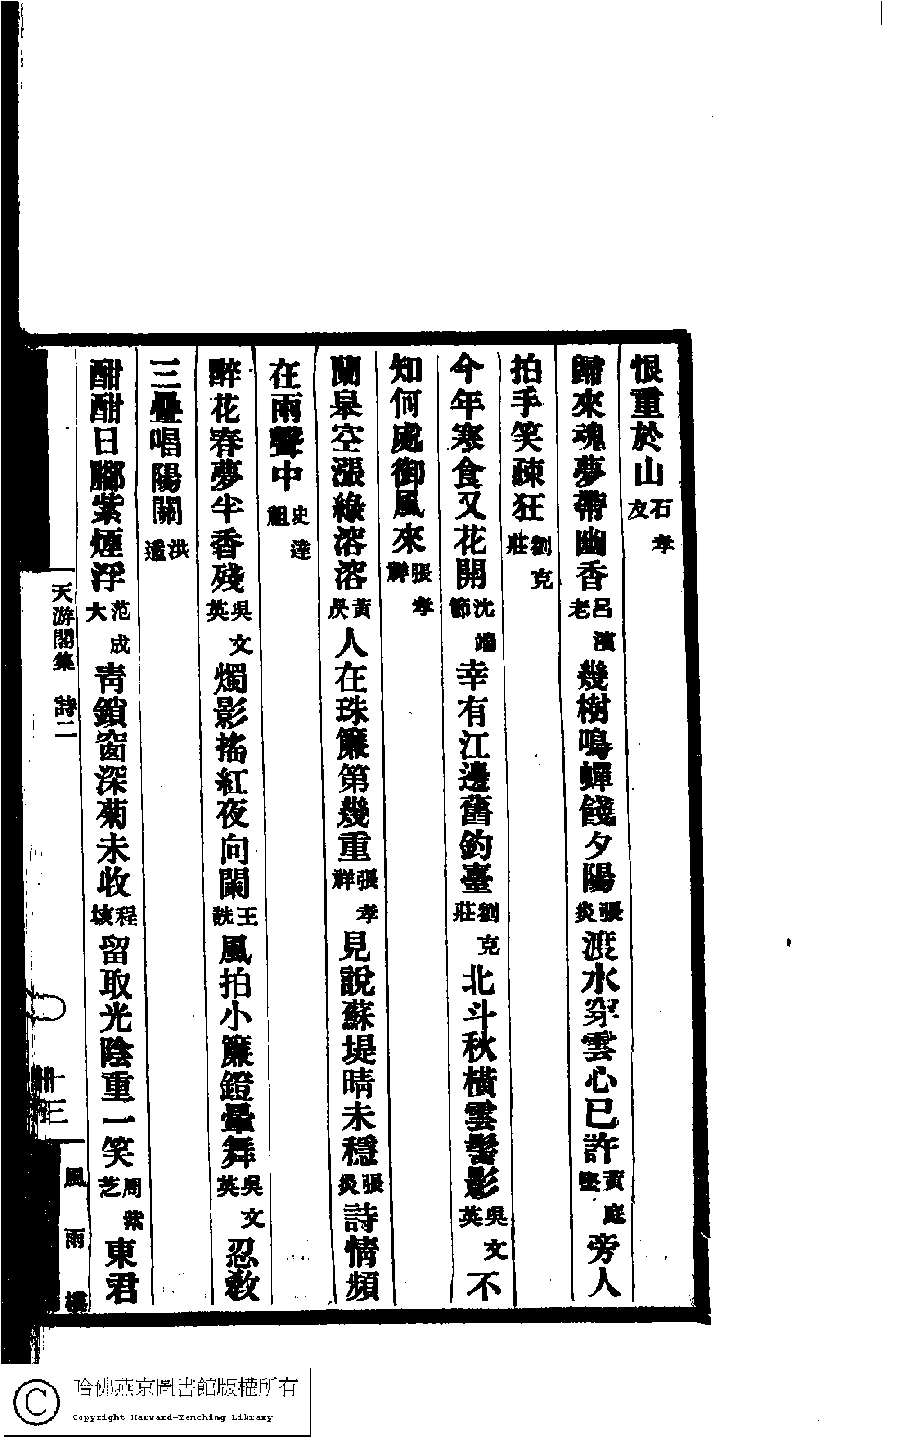 恨重於山石孝友
歸來魂夢帶幽香呂濱老幾樹鳴蟬餞夕陽張炎渡水穿雲心已許黃庭堅旁人
拍手笑疎狂劉克莊
今年寒食又花開沈端節幸有江邊舊釣臺劉克莊北斗秋橫雲髻影吳文英不
知何處御風來張孝祥
蘭皐空漲綠溶溶黃昃人在珠簾第幾重張孝祥見說蘇堤晴未穩張炎詩情頻
在雨聲中史達祖
醉花春夢半香殘吳文英燭影搖紅夜向闌王詵風拍小簾鐙暈舞吳文英忍教
三疊唱陽關洪适
酣酣日腳紫煙浮范成大靑鎖窗深菊未收程垓留取光陰重一笑周紫芝東君
天游閣集 詩二
十三
風雨樓
哈佛燕京圖書館版權所有
Copyright Harvard-Yenching Library